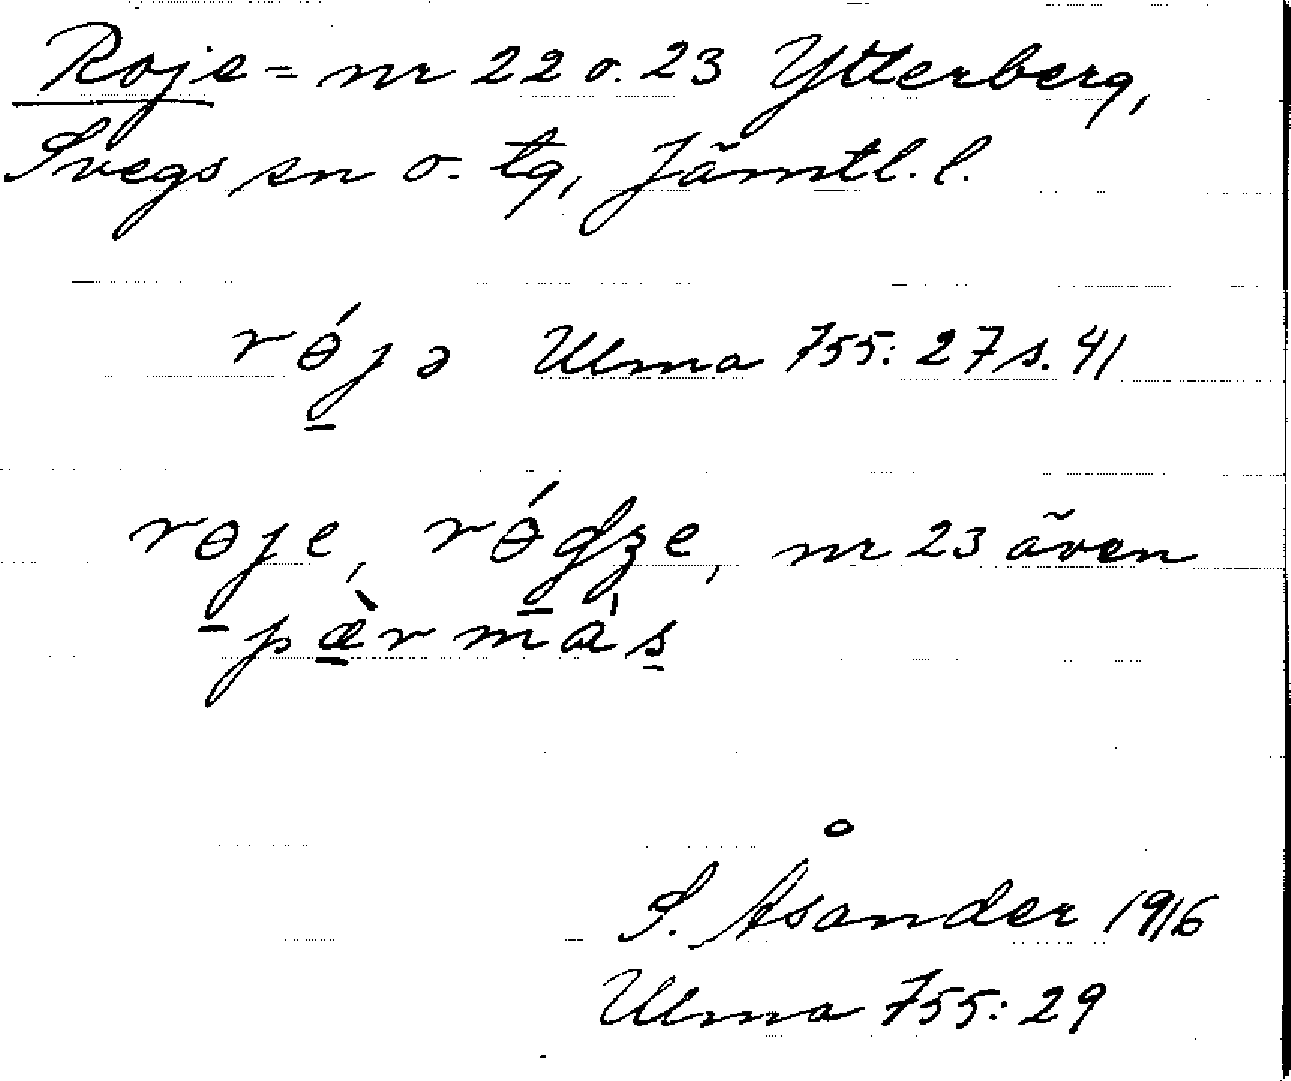 Roje = nr 22 o. 23 Ytterberg,
Svegs sn o. tg, Jämtl. l.
rɵ́jə Ulma 755: 27 s. 41
rɵje, rɵ́ʤe, nr 23 även
pæ̀rmàs
S. Åsander 1916
Ulma 755: 29